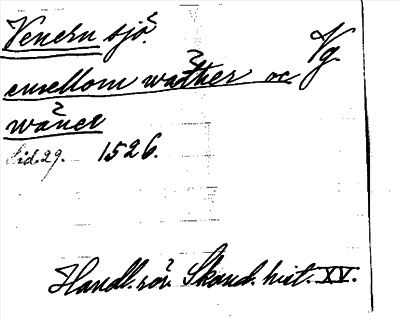 Venern sjö. Vg.
emellom wäther oc
wäner
Sid. 29. 1526.
Handl. rör. Skand. hist. XV.